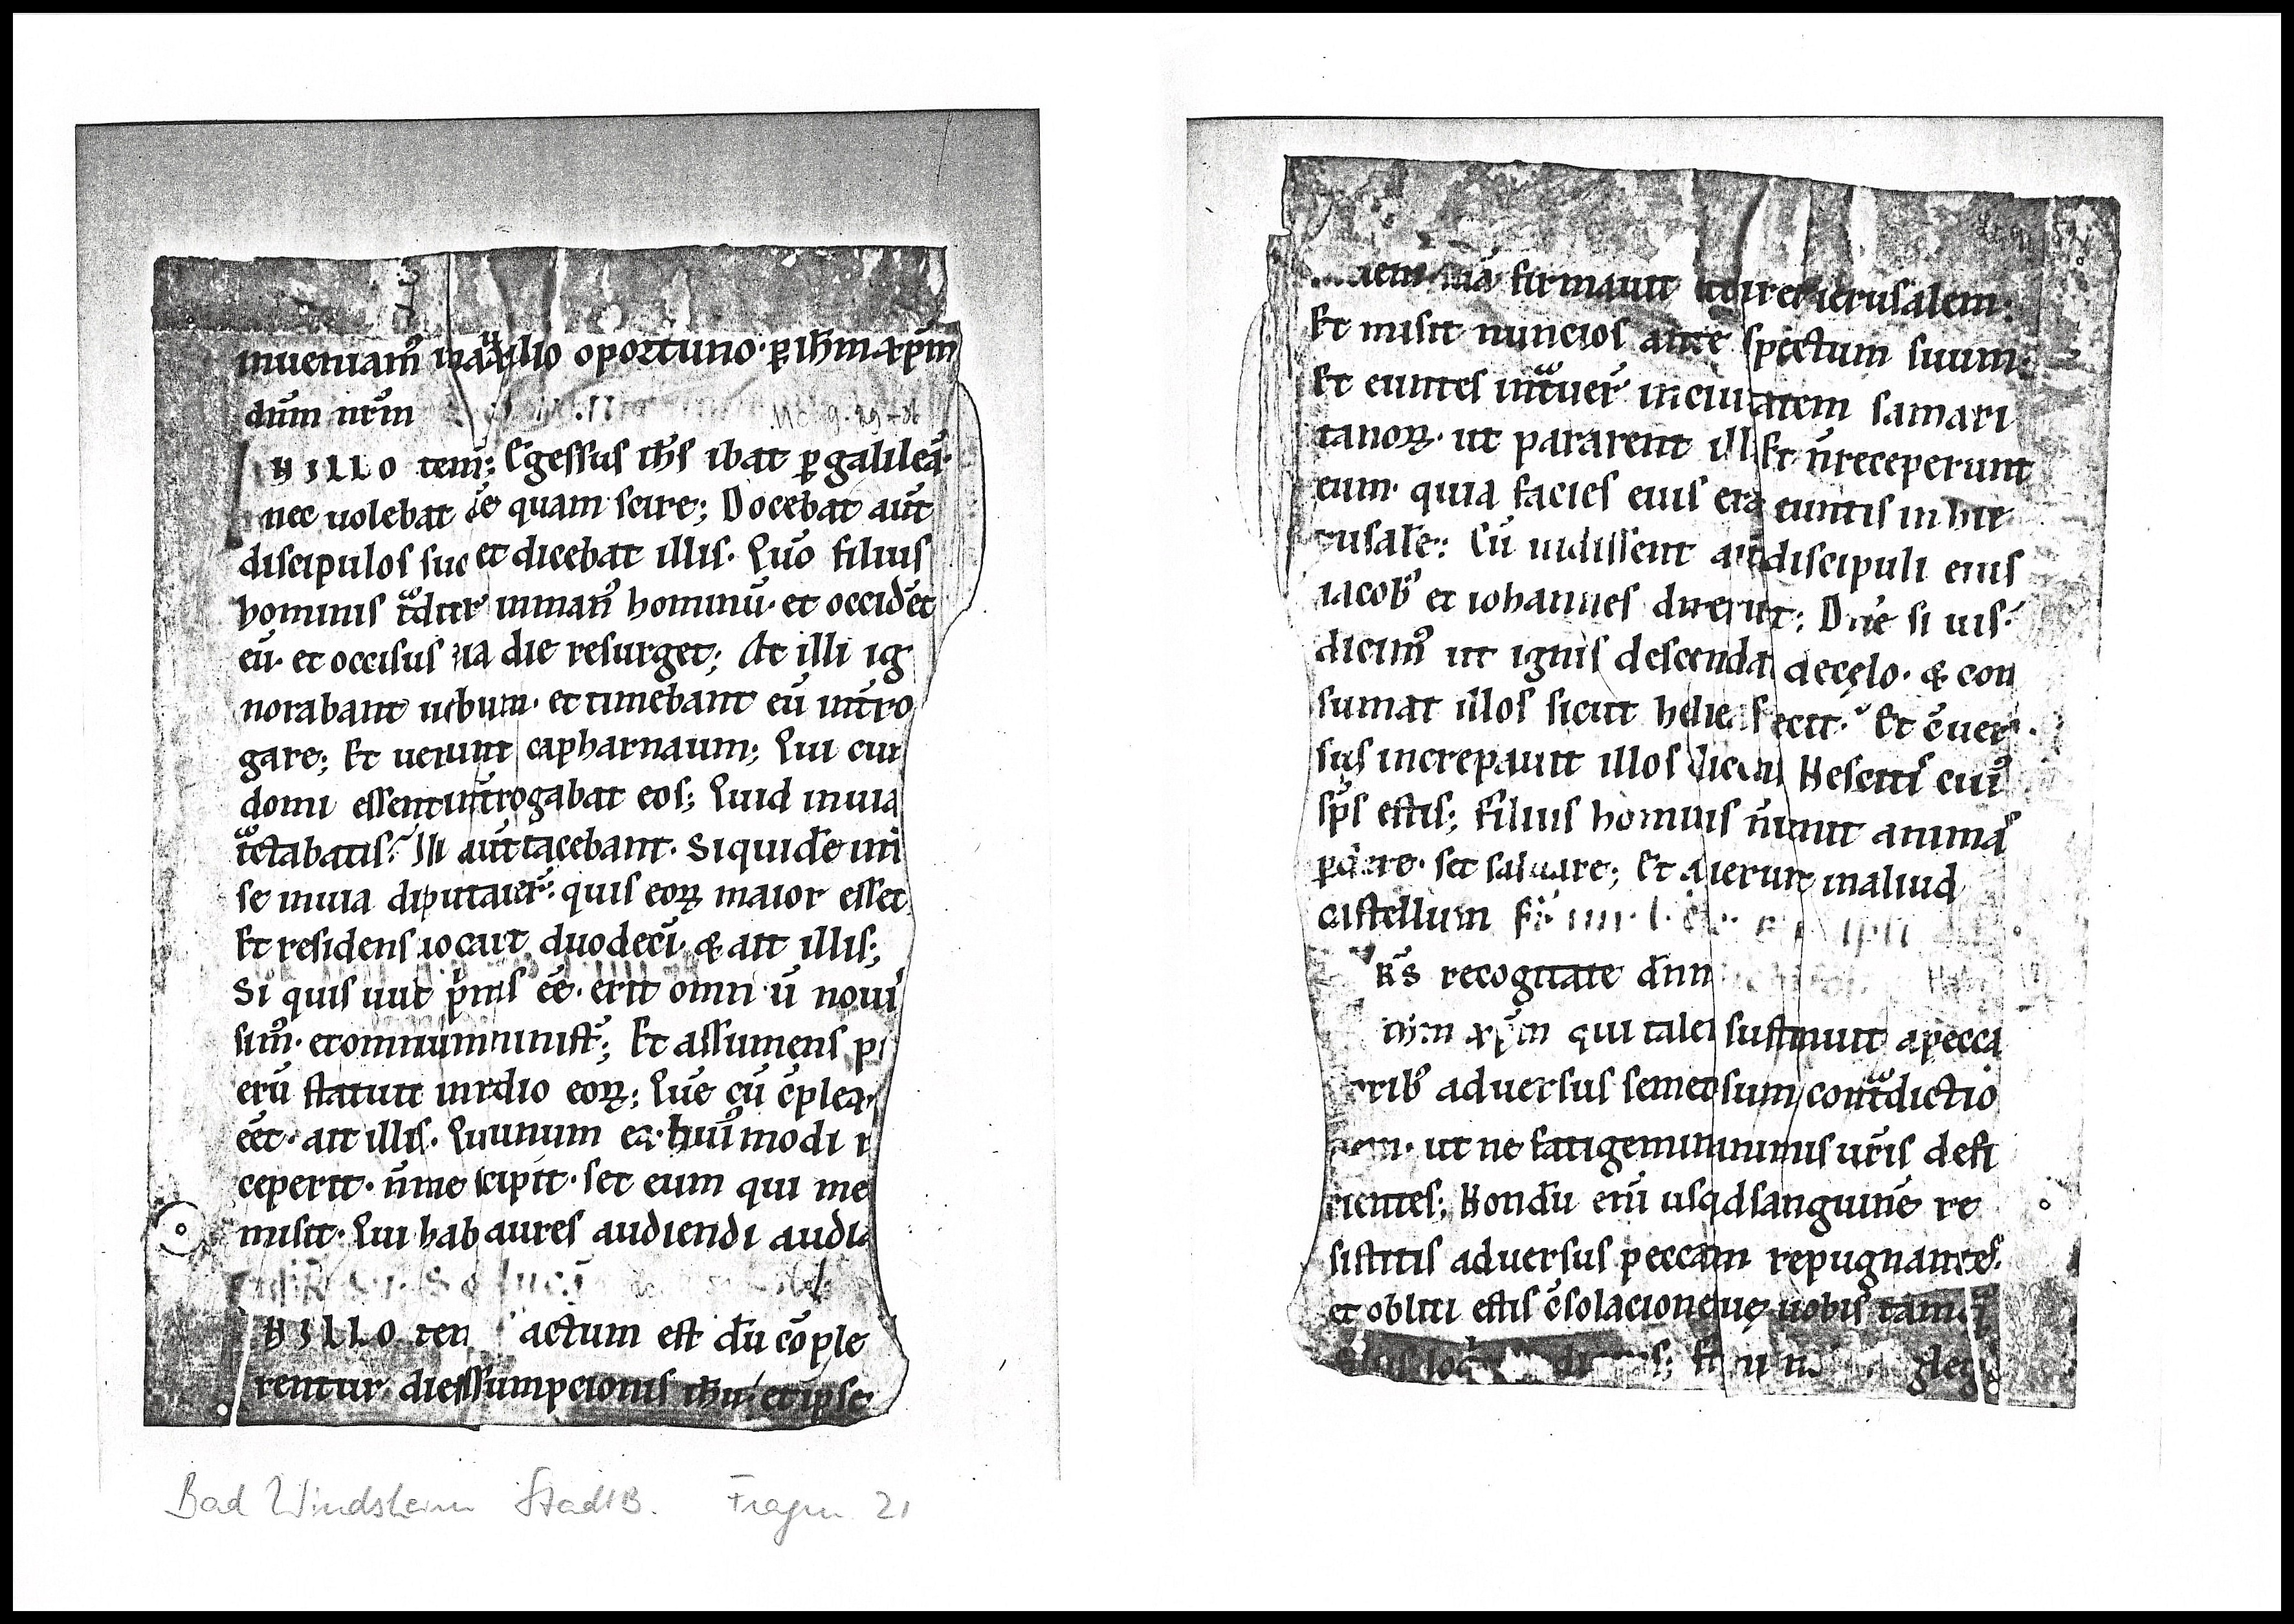 inueniam᷒ in auxilio oportuno· ꝑ ih̅m xp̅m
dn̅m nr̅m
IN ILLO tem̅; Egressus ih̅s ibat ꝑ galileā·
nec uolebat quam scire; Docebat aut̅
discipulos suo et dicebat illis· Qm̅o filius
hominis tᷓdet᷑ inman᷒ hominū· et occidēt
eū· et occisus tia die resurget; At illi ig
norabant uerbum· et timebant eū int̅ro
gare; Et uenerunt capharnaum; Qui cum
domi essent int̅rogabat eos; Quid inuia
tᷓctabatis? Illi aut̅ tacebant· Siquidē int̅
se inuia disputauer̅· quis eoꝝ maior esset
Et residens uocauit duodecī· & ait illis;
Si quis uult p̅mus eē· erit omniū noui
sim᷒· et omnium minist̅; Et assumens pu
erū statuit in medio eoꝝ; Quē cū c̅plex
eēt· ait illis· Qui unum ex hui᷒modi re
ceperit· n̅ me suscipit· set eum qui me
misit· Qui habet aures audiendi audiat
IN ILLO tem Factum est dū cōple
rentur dies assumpcionis ih̅u· et ipse
faciem suā firmauit ut iret ierusalem:
Et misit nuncios ante conspectum suum:
Et euntes intᷓuer̅ in ciuitatem samari
tanoꝝ· ut pararent illi Et n̅ receperunt
eum· quia facies eius erat euntis in hie
rusalē: Cū uidissent aut̅ discipuli eius
iacob᷒ et iohannes dixerunt; Dn̅e si uis·
dicim᷒ ut ignis descendat de cęlo· & con
sumat illos sicut helias fecit? Et c̅uer
sus increpauit illos dicens Nescitis cui᷒
sp̅s estis; Filius hominis n̅ uenit animas
ꝑdere· set saluare; Et abierunt in aliud
castellum
FR̅S recogitate dn̅m
ih̅m xp̅m qui talem sustinuit apecca
torib᷒ aduersus semetipsum contᷓdictio
nem· ut ne fatigemini animis ur̅is defi
cientes; Nondū enī usq; ad sanguinē re
sistitis aduersus peccatum repugnantes·
et obliti estis c̅solacionis que uobis tamqᷓ
filiis loq̅ dicens; Fili mi negleg
Bad Windsheim StadtB. Fragm 21